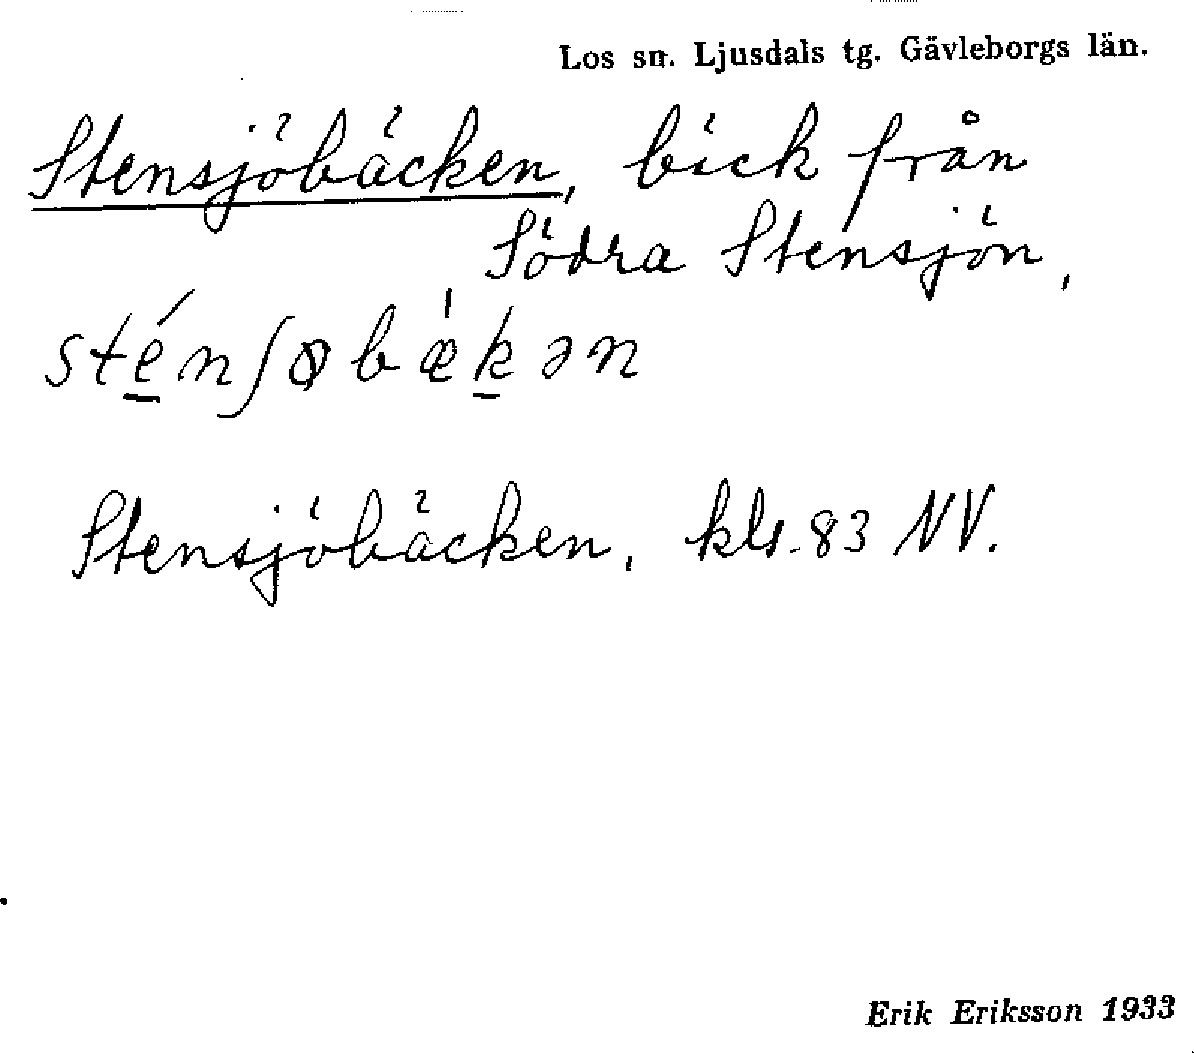 Los sn. Ljusdals tg. Gävleborgs län.
Stensjöbäcken, bäck från
Södra Stensjön,
sténʃøbǽkən
Stensjöbäcken, kls. 83 NV.
Erik Eriksson 1933